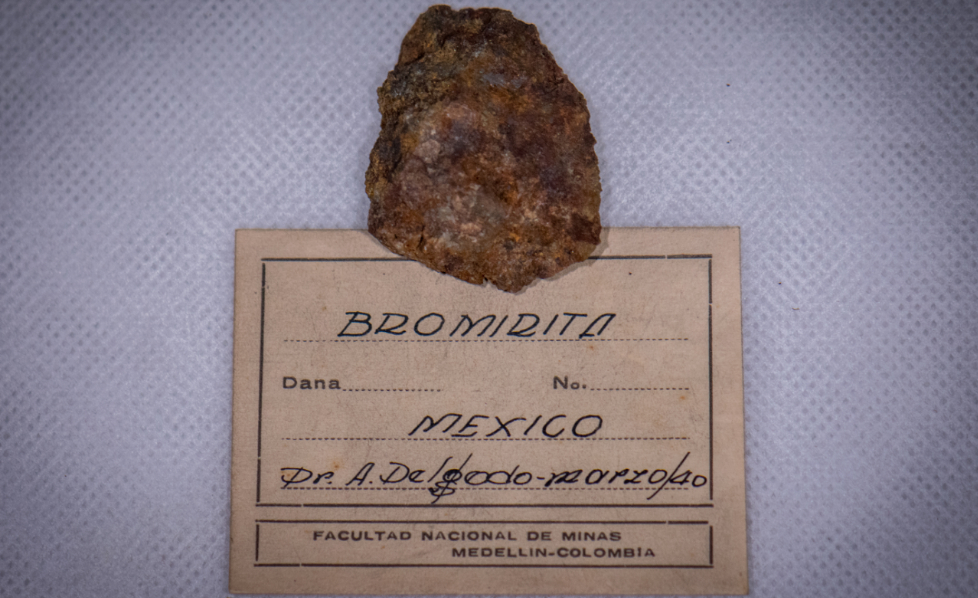 BROMIRITA
Dana No.
MEXICO
Dr. A. Delgado-marzo/40
FACULTAD NACIONAL DE MINAS
MEDELLIN-COLOMBIA